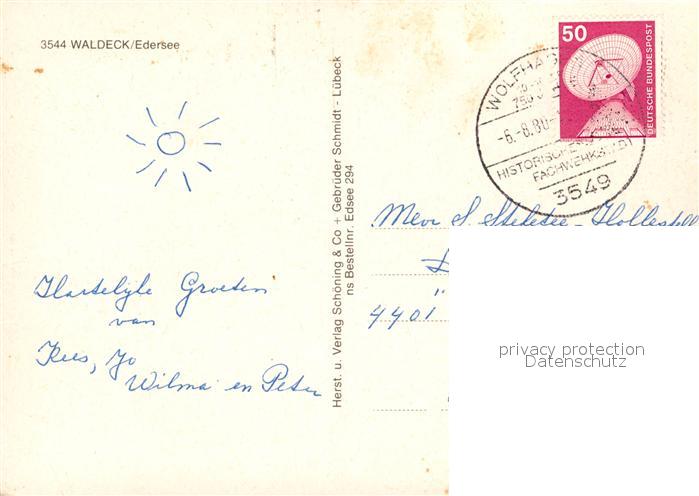 3544 WALDECK/Edersee
Hartelijke Groeten
van
Kees, Jo
Wilma en Peter
Herst. u. Verlag Schöning & Co + Gebrüder Schmidt - Lübeck
ns Bestellnr. Edsee 294
50
DEUTSCHE BUNDESPOST
WOLFHAG
750
-6.-8.80-
HISTORISCHE
FACHWERKSTADT
3549
Mevr S. Steketee - Hollestelle
4401
privacy protection
Datenschutz